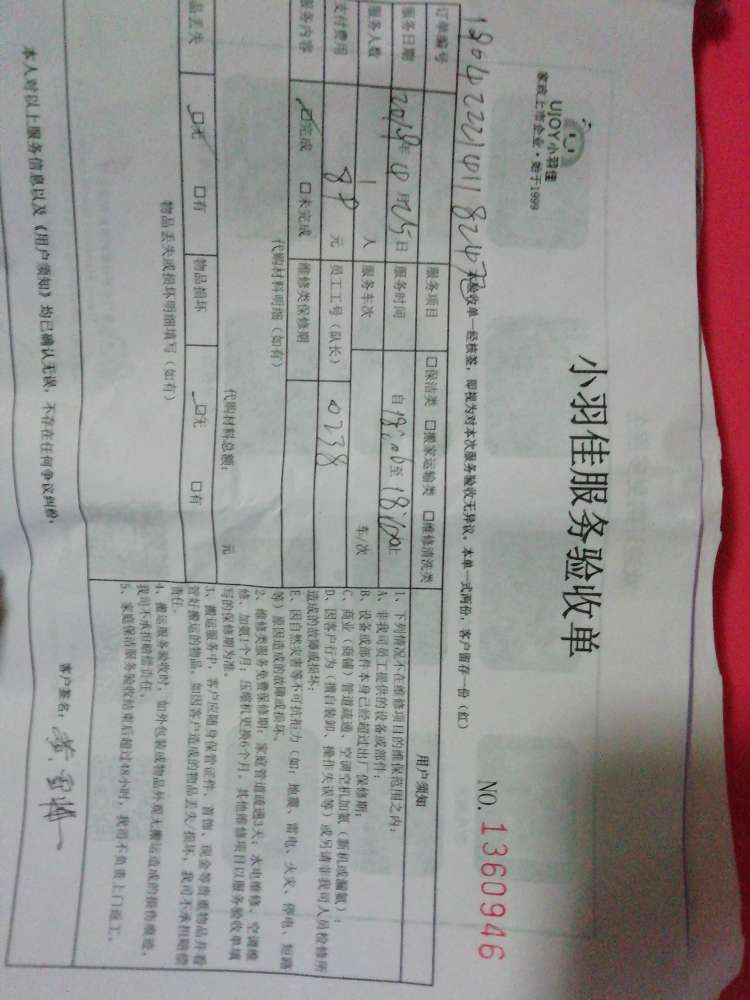 UJOY小羽佳
家政上市企业·始于1999
小羽佳服务验收单
NO. 1360946
本验收单一经核签，即视为对本次服务验收无异议。本单一式两份，客户留存一份（红）
订单编号
服务项目 □保洁类 □搬家运输类 □维修清洗类
服务日期 2019年10月25日 服务时间 自 至
服务人数 1 人 服务车次 车/次
支付费用 89 元 员工工号（队长） 0238
服务内容 □完成 □未完成 维修类保修期
代购材料明细（如有）
代购材料总额： 元
品丢失 □无 □有 物品损坏 □无 □有
物品丢失或损坏明细填写（如有）
用户须知
1、下列情况不在维修项目的维保范围之内：
A、非我司员工提供的设备或部件；
B、设备或部件本身已经超过出厂保修期；
C、商业（商铺）管道疏通、空调空机加氨（新机或漏氨）；
D、因客户行为（擅自装卸、操作失误等）或另请非我司人员检修所
造成的故障或损坏；
E、因自然灾害等不可抗拒力（如：地震、雷电、火灾、停电、短路
等）原因造成的故障或损坏。
2、维修类服务免费保修期：家庭管道疏通3天；水电维修、空调维
修、加氨1个月；压缩机更换6个月，其他维修项目以服务验收单填
写的保修期为准。
3、搬运服务中，客户应随身保管证件、首饰、现金等贵重物品并看
管好搬运的物品，如因客户造成的物品丢失/损坏，我司不承担赔偿
责任。
4、搬运服务验收时，如外包装或物品外观无搬运造成的损伤痕迹，
我司不承担赔偿责任。
5、家庭保洁服务验收结束后超过48小时，我司不负责上门返工。
本人对以上服务信息以及《用户须知》均已确认无误，不存在任何争议纠纷。
客户签名：